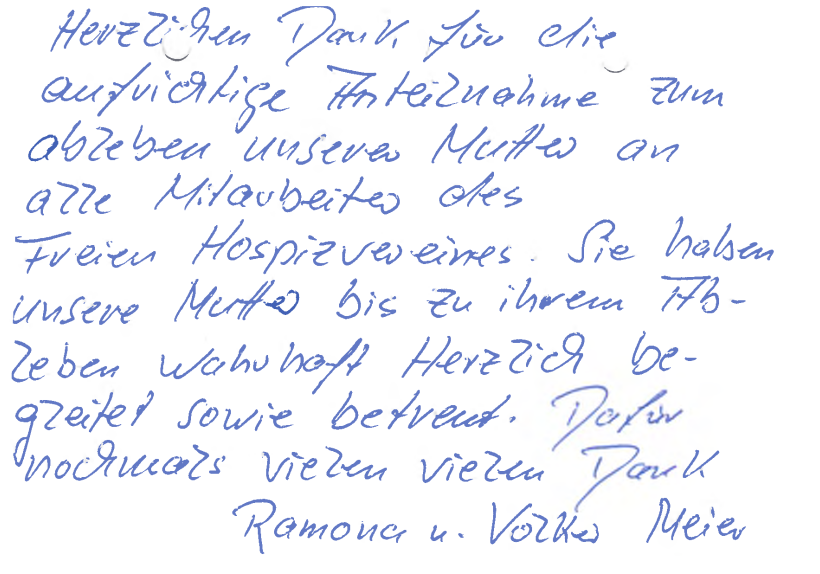 Herzlichen Dank für die
aufrichtige Anteilnahme zum
ableben unserer Mutter an
alle Mitarbeiter des
Freien Hospizvereines. Sie haben
unsere Mutter bis zu ihrem Ab-
leben wahrhaft Herzlich be-
gleitet sowie betreut. Dafür
nochmals vielen vielen Dank
Ramona u. Volker Meier